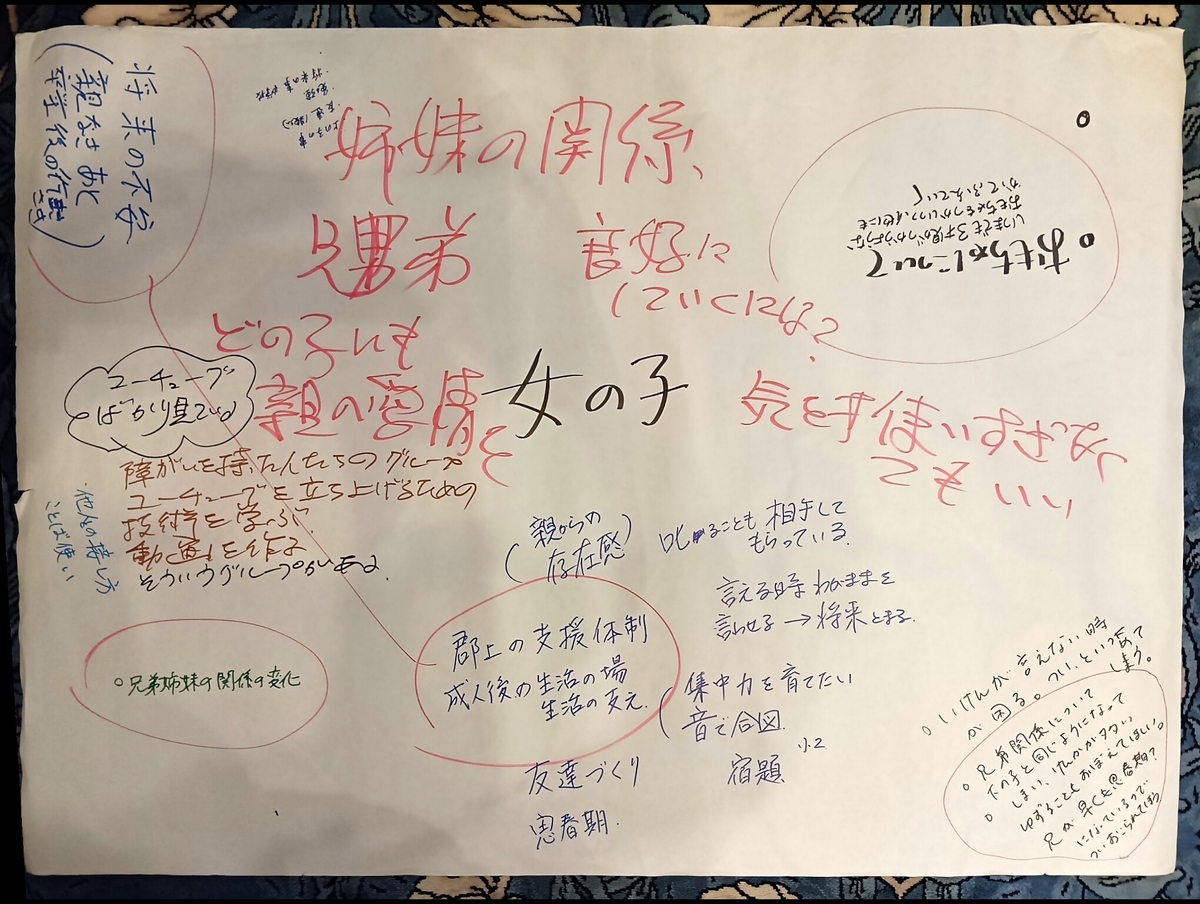 将来の不安
(親なきあと
卒業後の
姉妹の関係、
兄弟
良好に
していくには?
どの子にも
親の愛情を
女の子
気を使いすぎなく
てもいい
おもちゃについて
いまでも3才児がつかうような
おもちゃをつかいつつ、他にも
ユーチューブ
ばかり見ている
障がいを持った人たちのグループ
ユーチューブを立ち上げるための
技術を学ぶ。
動画を作る
そういうグループがある。
・他者の接し方
ことば使い
(親からの
存在感)
叱ることも相手して
もらっている。
言える時わがままを
言わせる→将来とまる。
郡上の支援体制
成人後の生活の場
生活の支え
集中力を育てたい
(音で合図
宿題
小2
友達づくり
思春期.
○兄弟姉妹の関係の変化
○いけんが言えない時
が困る。つい、といつめて
しまう。
○兄弟関係について
下の子と同じようになって
しまい、けんかが多い。
○ゆずることもおぼえてほしい。
兄が早くも思春期?
になっているので
ついおこられてしまう